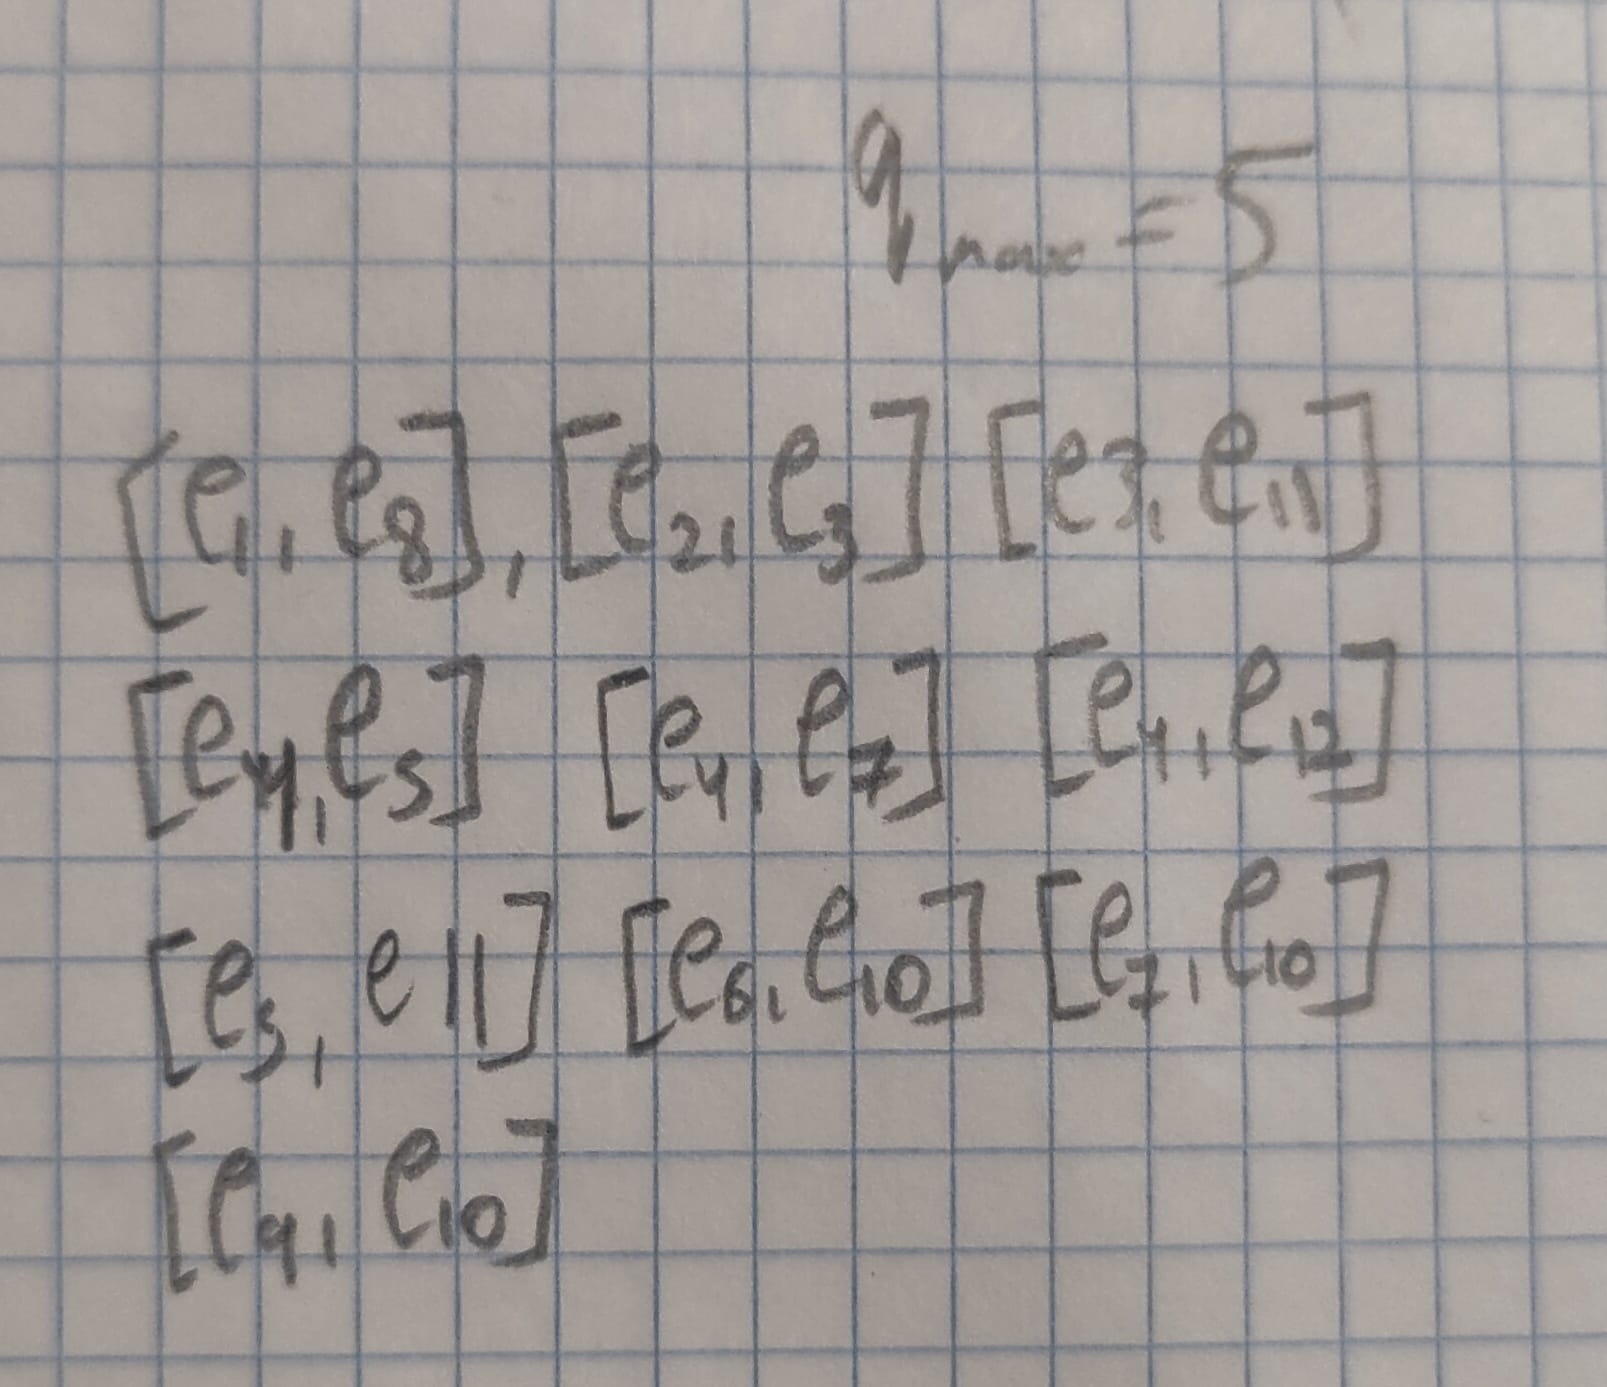 q_max = 5
[e₁, e₈], [e₂, e₃] [e₃, e₁₁]
[e₄, e₅] [e₄, e₇] [e₄, e₁₂]
[e₅, e11] [e₆, e₁₀] [e₇, e₁₀]
[e₉, e₁₀]